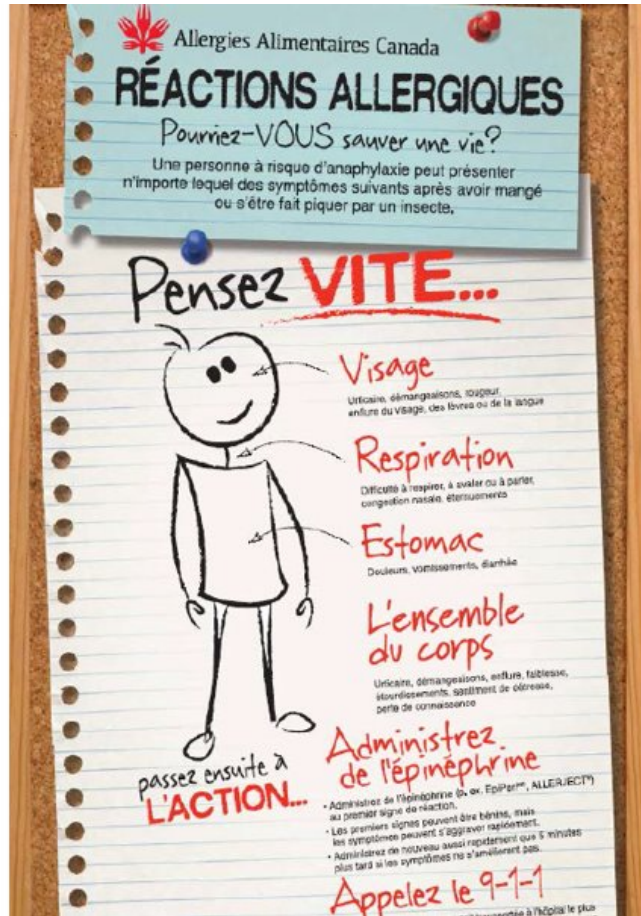 Allergies Alimentaires Canada
RÉACTIONS ALLERGIQUES
Pourriez-VOUS sauver une vie?
Une personne à risque d'anaphylaxie peut présenter
n'importe lequel des symptômes suivants après avoir mangé
ou s'être fait piquer par un insecte.
Pensez VITE...
Visage
Urticaire, démangeaisons, rougeur,
enflure du visage, des lèvres ou de la langue
Respiration
Difficulté à respirer, à avaler ou à parler,
congestion nasale, éternuements
Estomac
Douleurs, vomissements, diarrhée
L'ensemble
du corps
Urticaire, démangeaisons, enflure, faiblesse,
étourdissements, sentiment de détresse,
perte de connaissance
passez ensuite à
L'ACTION...
Administrez
de l'épinéphrine
• Administrez de l'épinéphrine (p. ex. EpiPen, ALLERJECT)
au premier signe de réaction.
• Les premiers signes peuvent être bénins, mais
les symptômes peuvent s'aggraver rapidement.
• Administrez de nouveau aussi rapidement que 5 minutes
plus tard si les symptômes ne s'améliorent pas.
Appelez le 9-1-1
à l'hôpital le plus